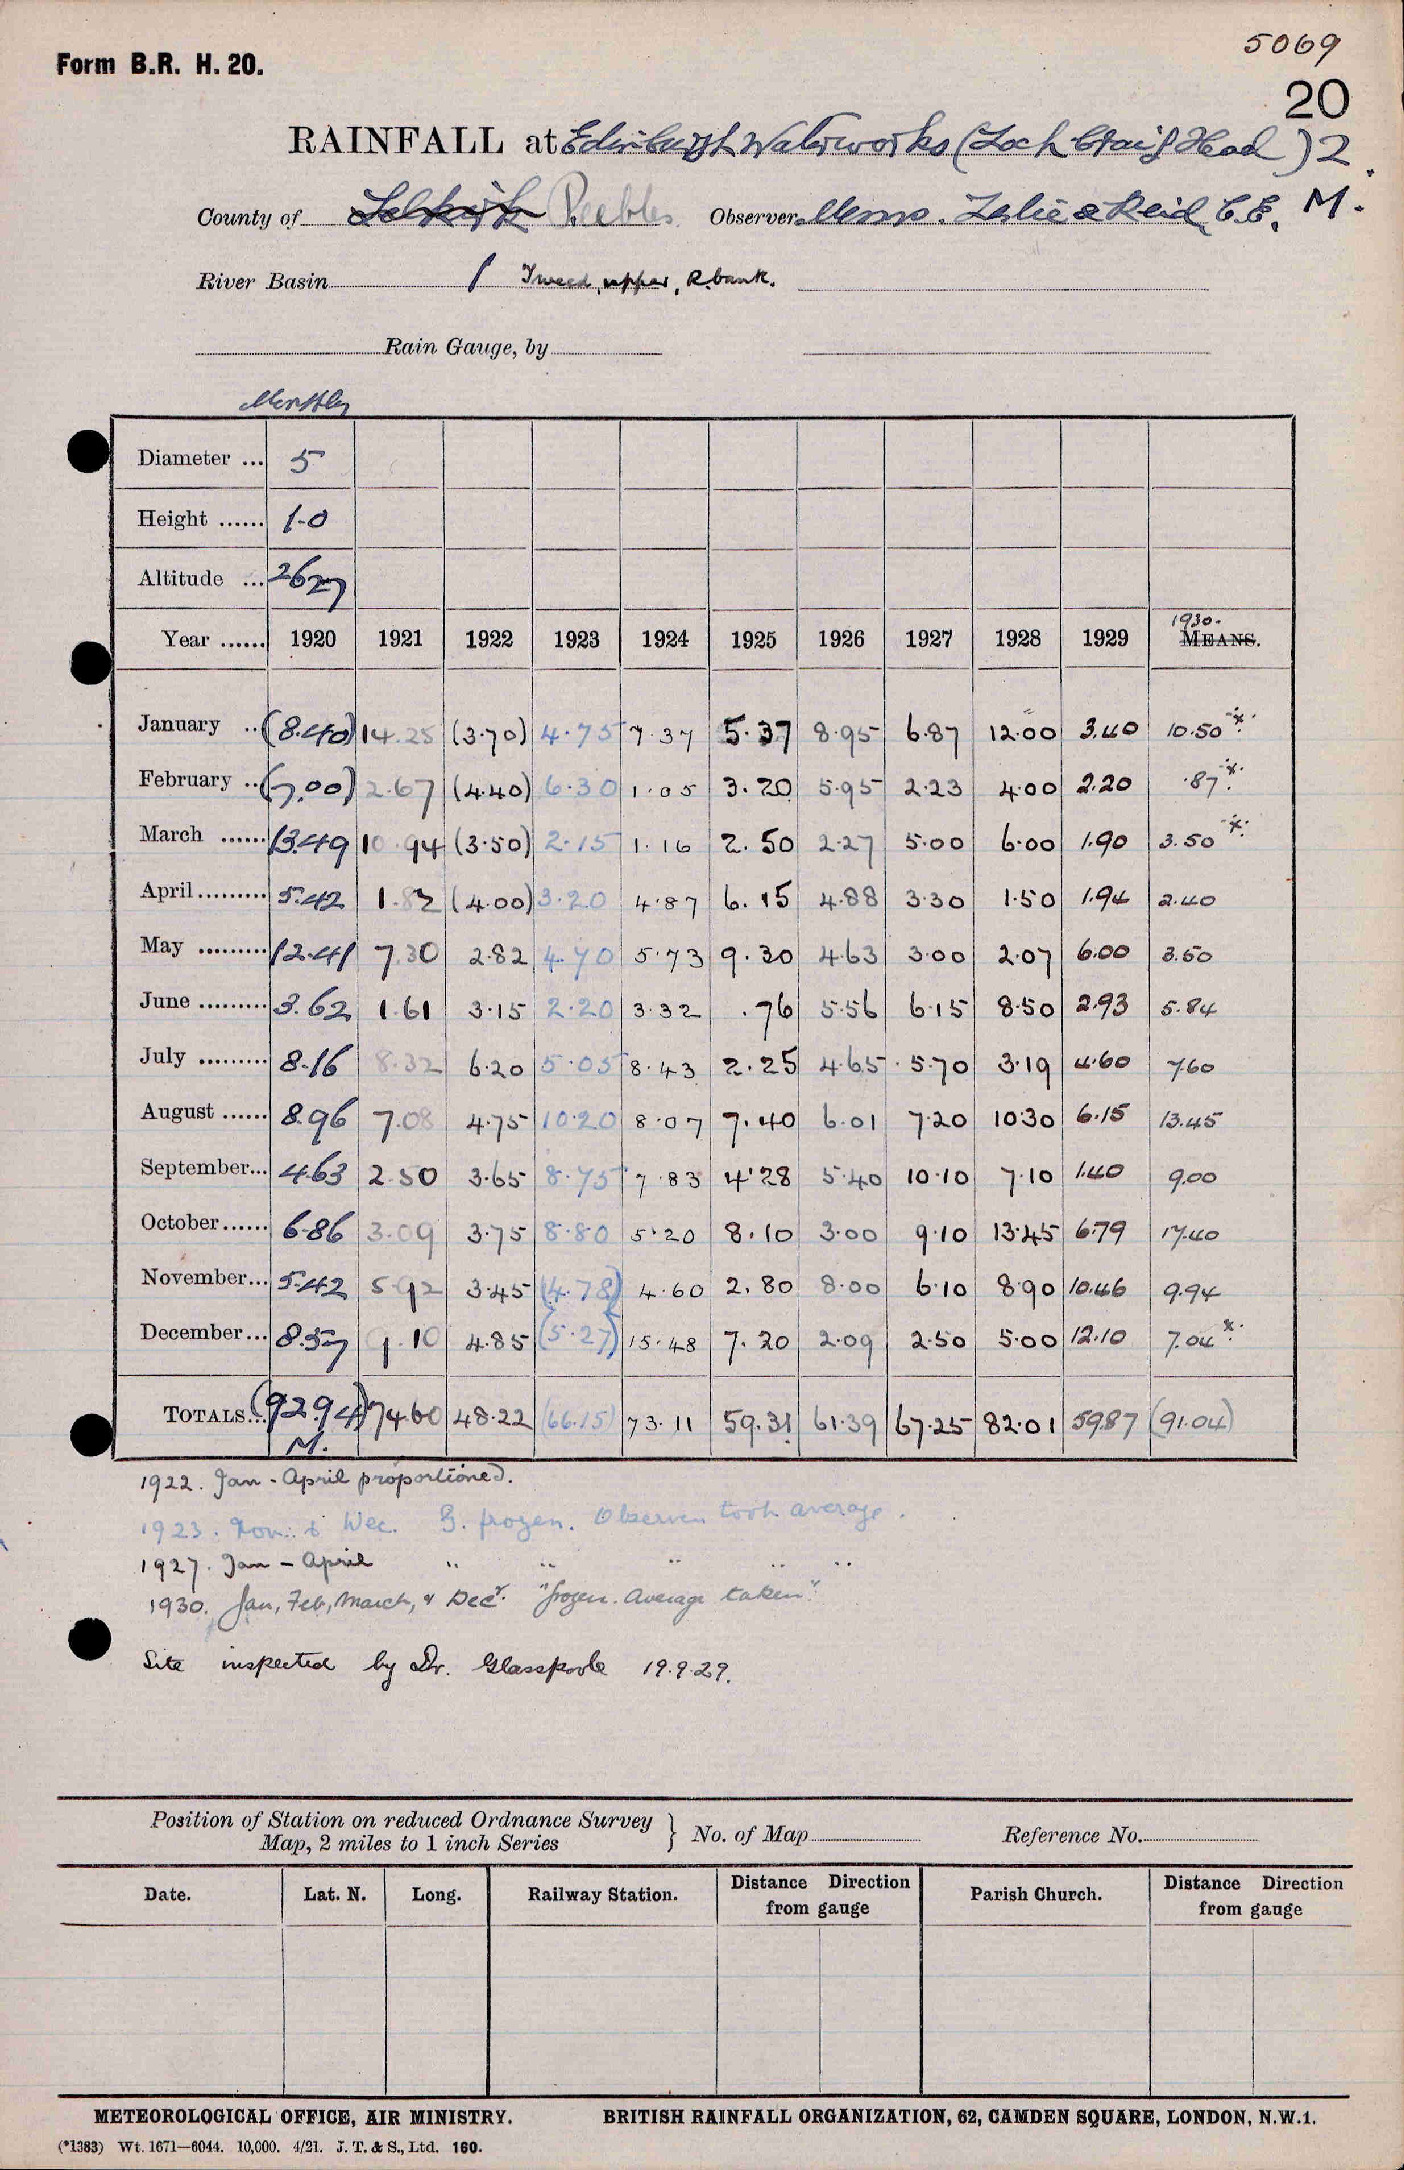 5069
Form B.R. H. 20.
20
RAINFALL at Edinburgh Waterworks (Loch Craig Head) 2.
County of Selkirk Peebles Observer Messrs. Leslie & Reid, C.E. M.
River Basin 1 Tweed, upper, R. bank.
Rain Gauge, by
Monthly
Diameter ... 5
Height ...... 1-0
Altitude ... 2627
1930.
Year ...... 1920 1921 1922 1923 1924 1925 1926 1927 1928 1929 MEANS.
January .. (8.40) 14.25 (3.70) 4.75 7.37 5.37 8.95 6.87 12.00 3.40 10.50 *
February .. (7.00) 2.67 (4.40) 6.30 1.05 3.20 5.95 2.23 4.00 2.20 .87 *
March ...... 13.49 10.94 (3.50) 2.15 1.16 2.50 2.27 5.00 6.00 1.90 3.50 *
April ......... 5.42 1.82 (4.00) 3.20 4.87 6.15 4.88 3.30 1.50 1.94 2.40
May ......... 12.41 7.30 2.82 4.70 5.73 9.30 4.63 3.00 2.07 6.00 3.50
June ......... 3.62 1.61 3.15 2.20 3.32 .76 5.56 6.15 8.50 2.93 5.84
July ......... 8.16 8.32 6.20 5.05 8.43 2.25 4.65 5.70 3.19 4.60 7.60
August ...... 8.96 7.08 4.75 10.20 8.07 7.40 6.01 7.20 10.30 6.15 13.45
September... 4.63 2.50 3.65 8.75 7.83 4.28 5.40 10.10 7.10 1.40 9.00
October ...... 6.86 3.09 3.75 8.80 5.20 8.10 3.00 9.10 13.45 6.79 17.40
November... 5.42 5.92 3.45 (4.78) 4.60 2.80 8.00 6.10 8.90 10.46 9.94
December ... 8.57 9.10 4.85 (5.27) 15.48 7.20 2.09 2.50 5.00 12.10 7.04 *
TOTALS... (92.94) 74.60 48.22 (66.15) 73.11 59.31 61.39 67.25 82.01 59.87 (91.04)
M.
1922. Jan - April proportioned.
1923. Nov. & Dec. G. frozen. Observer took average.
1927. Jan - April " " " " "
1930. Jan, Feb, March, & Decr. "frozen. Average taken"
Site inspected by Dr. Glasspoole 19.9.29.
Position of Station on reduced Ordnance Survey
Map, 2 miles to 1 inch Series } No. of Map Reference No.
Date. Lat. N. Long. Railway Station. Distance Direction from gauge Parish Church. Distance Direction from gauge
METEOROLOGICAL OFFICE, AIR MINISTRY. BRITISH RAINFALL ORGANIZATION, 62, CAMDEN SQUARE, LONDON, N.W.1.
(*1383) Wt. 1671—6044. 10,000. 4/21. J. T. & S., Ltd. 160.